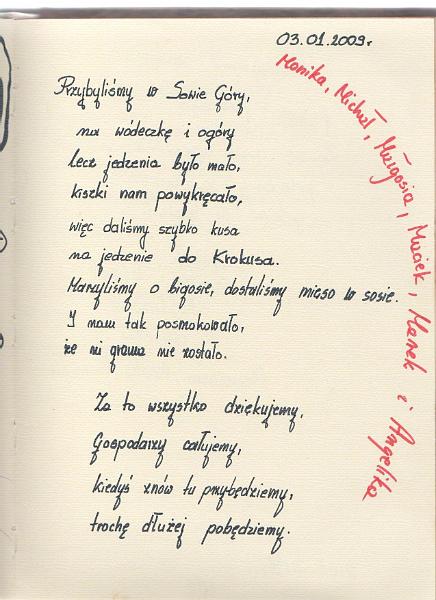 03.01.2009r
Monika, Michał, Małgosia, Maciek, Marek i Angelika
Przybyliśmy w Sowie Góry,
na wódeczkę i ogóry
lecz jedzenia było mało,
kiszki nam powykręcało,
więc daliśmy szybko kusa
na jedzenie do Krokusa.
Marzyliśmy o bigosie, dostaliśmy mięso w sosie.
I nam tak posmakowało,
że ni grama nie zostało.
Za to wszystko dziękujemy,
Gospodarzy całujemy,
kiedyś znów tu przybędziemy,
trochę dłużej pobędziemy.